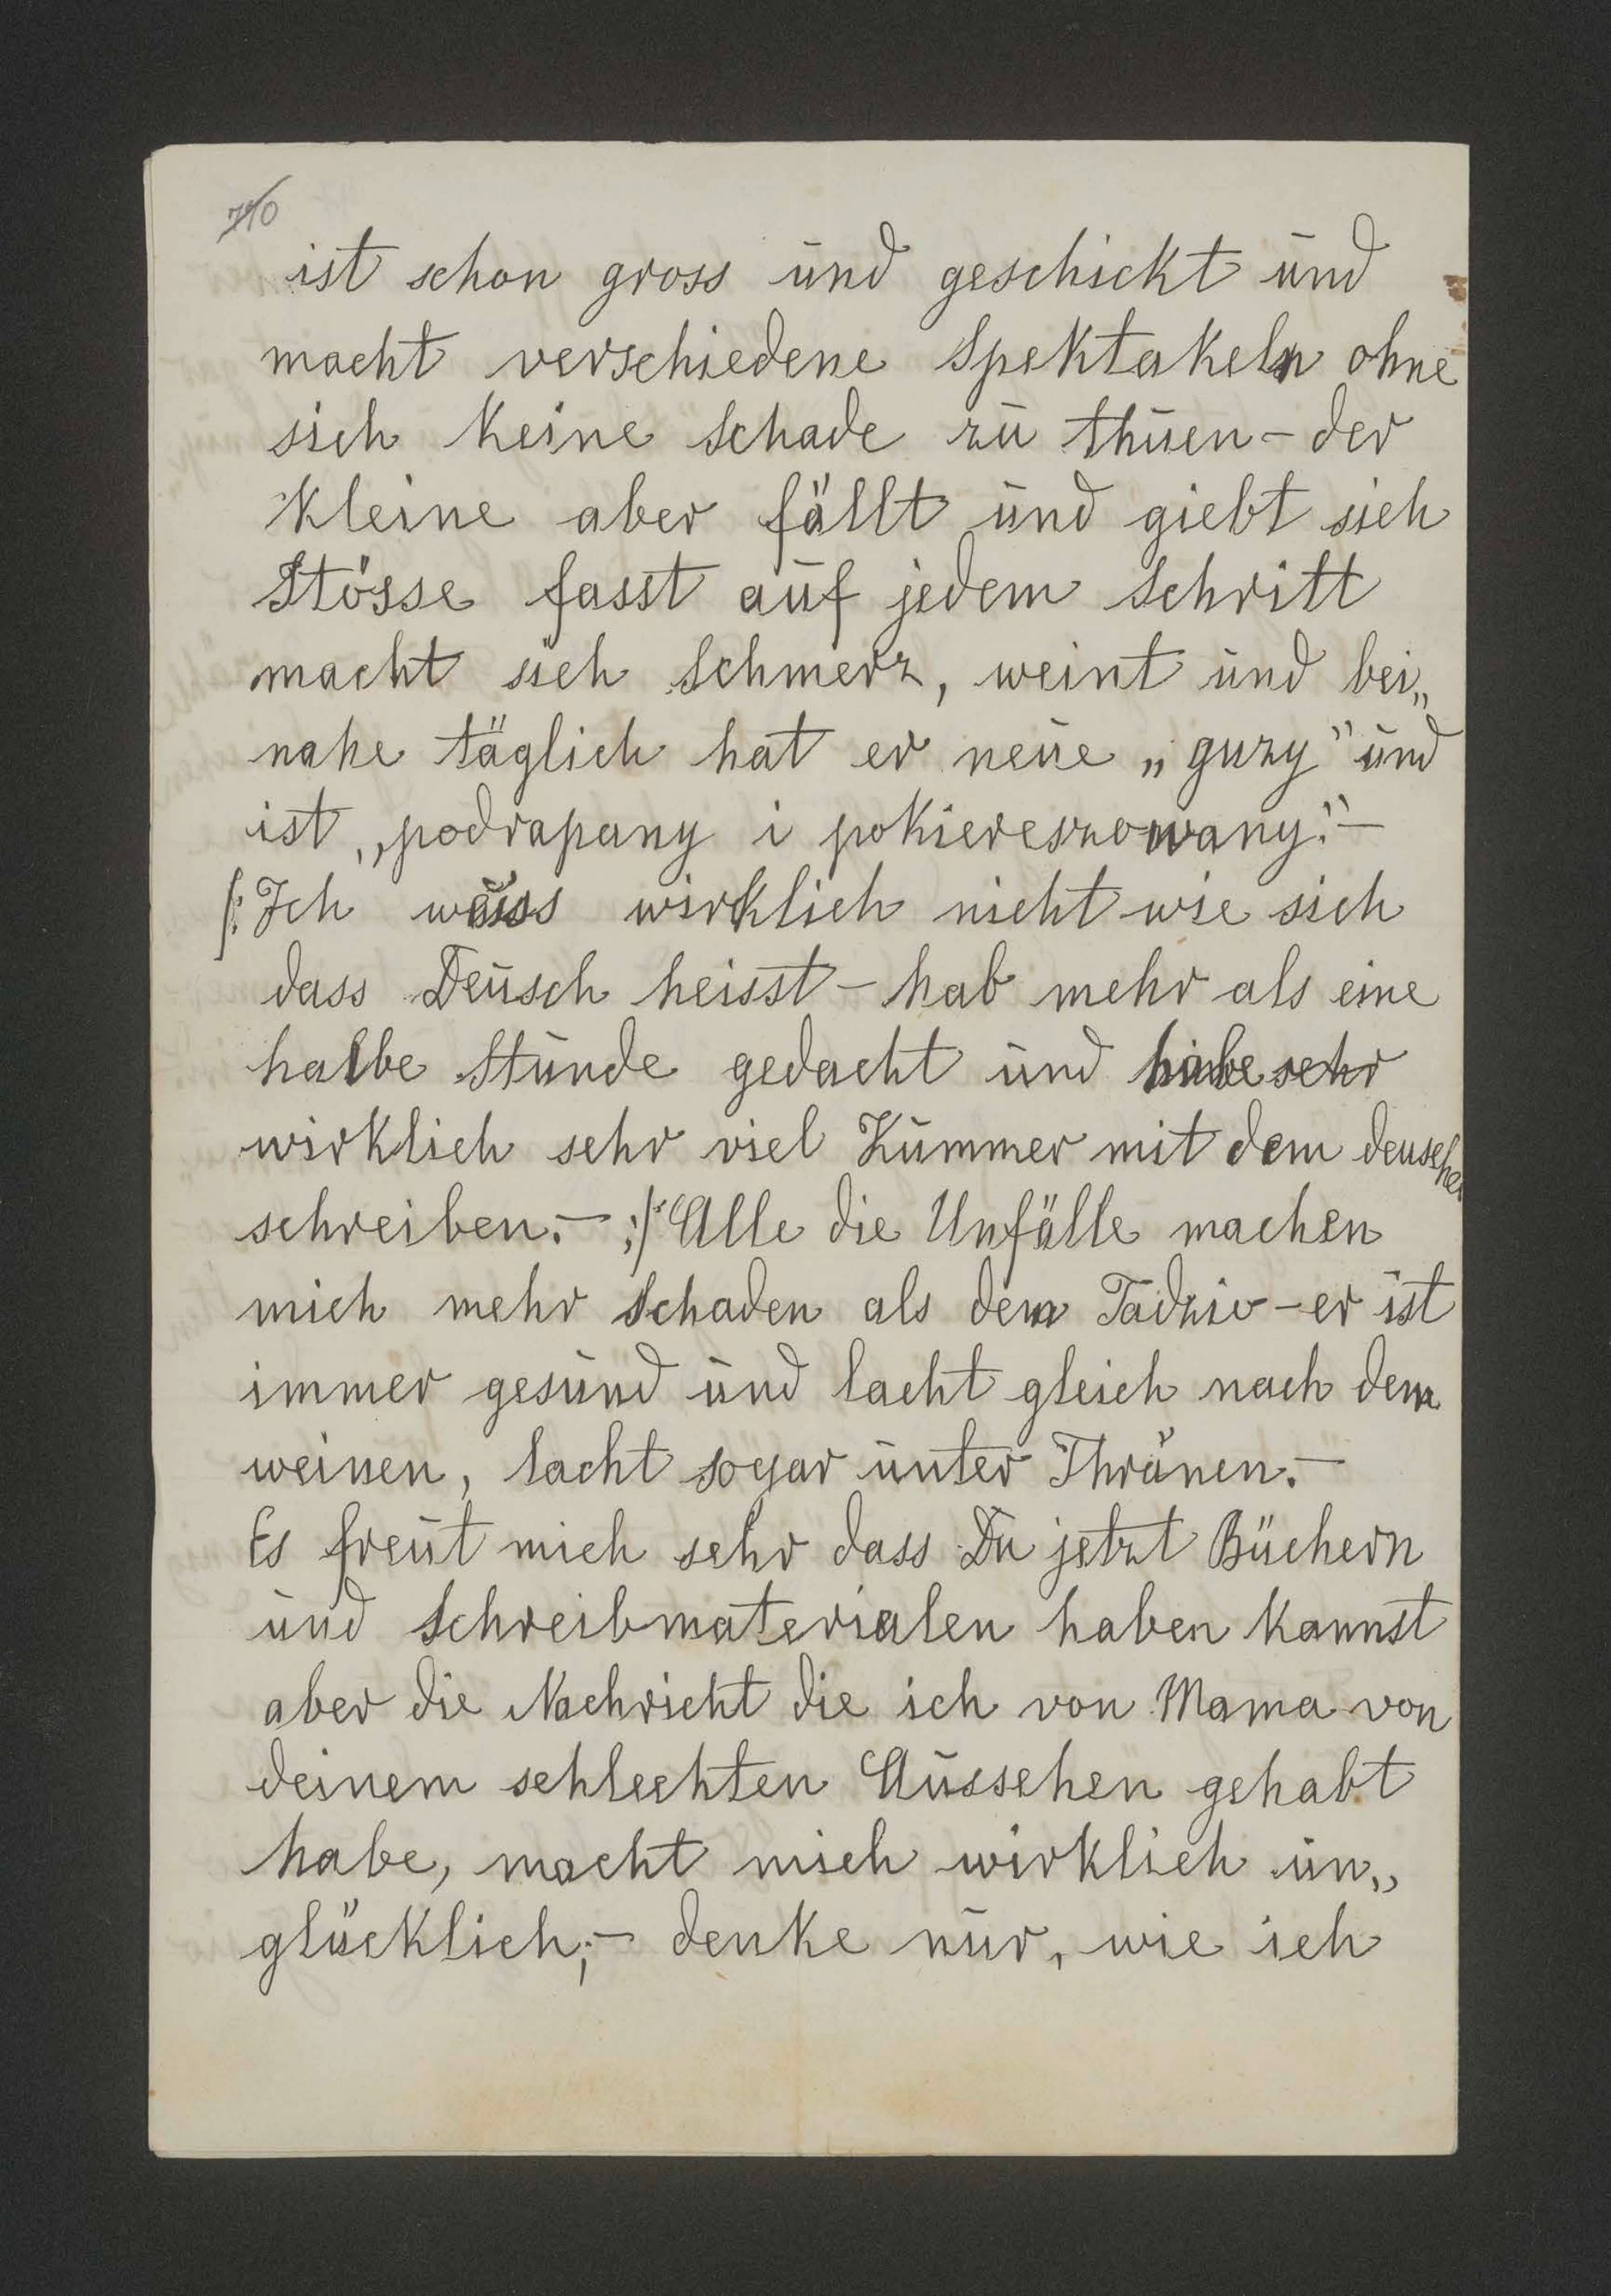 710
ist schon gross und geschickt und
macht verschiedene Spektakeln ohne
sich keine Schade zu thuen – der
Kleine aber fällt und giebt sich
Stösse fasst auf jedem Schritt
macht sich Schmerz, weint und bei„
nahe täglich hat er neue „guzy" und
ist „podrapany i pokiereszowany." –
/: Ich weiss wirklich nicht wie sich
dass Deusch heisst – hab mehr als eine
halbe Stunde gedacht und habe sehr
wirklich sehr viel Kummer mit dem deuschen
schreiben. – :/ Alle die Unfälle machen
mich mehr Schaden als dem Tadzio – er ist
immer gesund und lacht gleich nach dem
weinen, lacht sogar unter Thränen. –
Es freut mich sehr dass Du jetzt Büchern
und Schreibmaterialen haben kannst
aber die Nachricht die ich von Mama von
deinem schlechten Aussehen gehabt
habe, macht mich wirklich un„
glücklich; – denke nur, wie ich